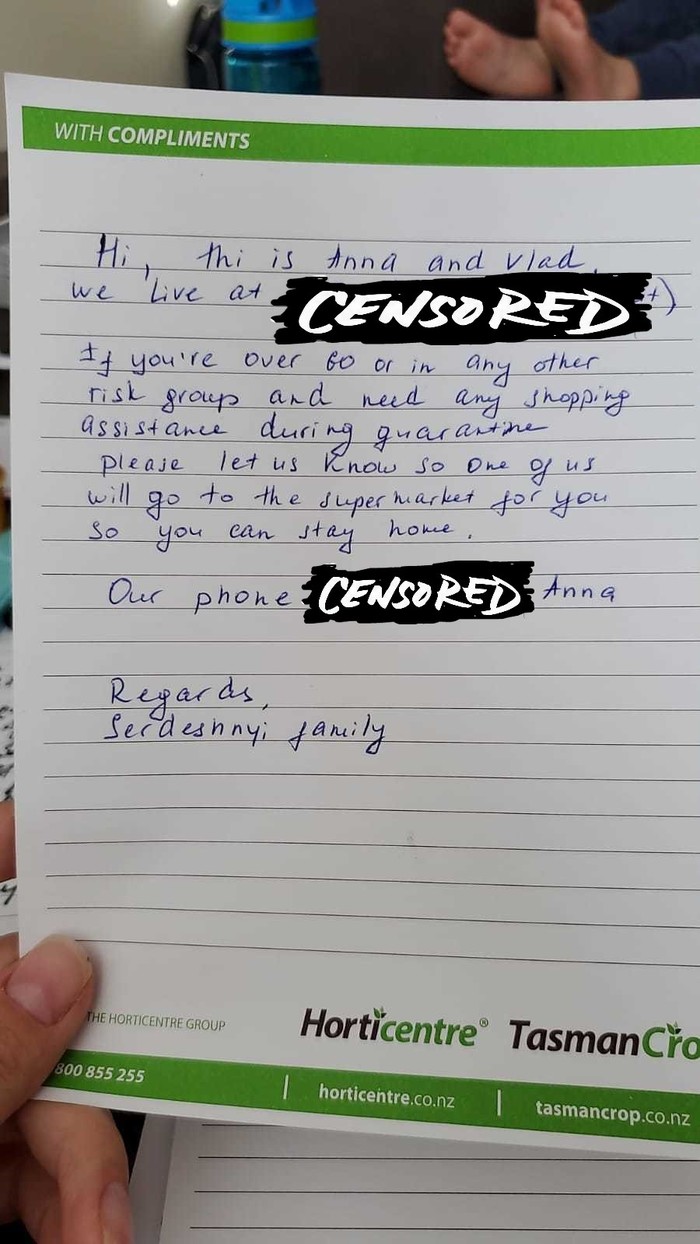 WITH COMPLIMENTS
Hi, thi is Anna and Vlad.
we live at CENSORED t)
If you're over 60 or in any other
risk group and need any shopping
assistance during quarantine
please let us know so one of us
will go to the supermarket for you
so you can stay home.
Our phone CENSORED Anna
Regards,
Serdeshnyi family
THE HORTICENTRE GROUP
Horticentre® TasmanCro
800 855 255 | horticentre.co.nz | tasmancrop.co.nz